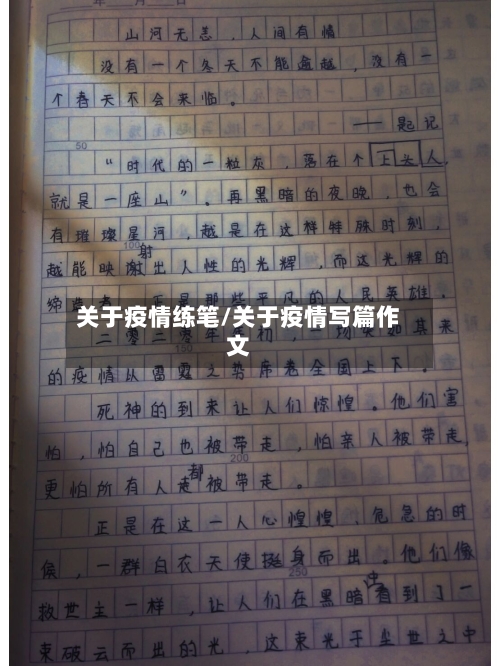 山河无恙，人间有情
没有一个冬天不能逾越，没有一
个春天不会来临。
——题记
50
“时代的一粒灰，落在个人上头，
就是一座山”。再黑暗的夜晚，也会
有璀璨星河，越是在这样特殊时刻，
100
射
越能映谢出人性的光辉，而这光辉的
缔造者，正是那些平凡的人民英雄。
关于疫情练笔/关于疫情写篇作
文
二零二零年初，一场突如其来
的疫情从雷霆之势席卷全国上下。
死神的到来让人们惊惶。他们害
怕，怕自己也被带走，怕亲人被带走，
200
都
更怕所有人走被带走。
正是在这一人心惶惶、危急的时
侯，一群白衣天使挺身而出。他们像
250
中
救世主一样，让人们在黑暗看到了一
束破云而出的光，这束光于尘世之中